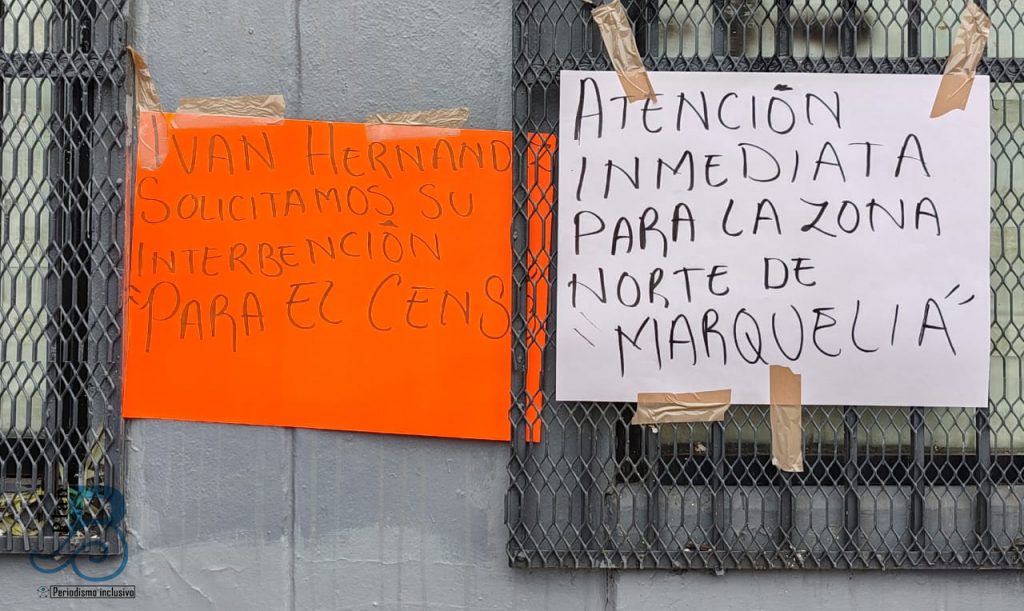 IVAN HERNAND
SOLICITAMOS SU
INTERBENCIÓN
"PARA EL CENS
ATENCIÓN
INMEDIATA
PARA LA ZONA
NORTE DE
"MARQUELIA"
Periodismo inclusivo